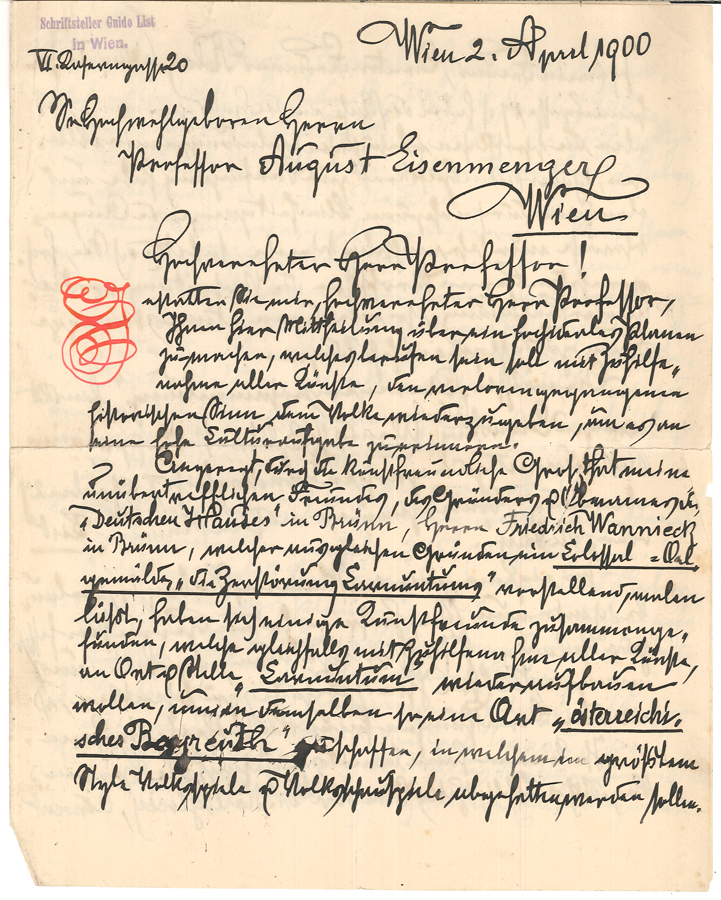 Schriftsteller Guido List
in Wien.
Wien 2. April 1900
VI. 20
Sr Hochwohlgeboren Herrn
Professor August Eisenmenger
Wien
Hochverehrter Herr Professor!
Gestatten Sie mir, hochverehrter Herr Professor,
Ihnen hier Mittheilung über ein hochideales Planen
zu machen, welches berufen sein soll mit Zuhilfe„
nahme aller Künste, den verloren gegangenen
historischen Sinn dem Volke wiederzugeben, um es an
seine hohe Culturaufgabe zu erinnern.
Angeregt, durch die kunstfreundliche Groß-that meines
unübertrefflichen Freundes, des Gründers & Obmannes des
„Deutschen Hauses" in Brünn, Herrn Friedrich Wannieck
in Brünn, welcher aus gleichen Gründen ein Colossal=Oel„
gemälde, „die Zerstörung Carnuntums" vorstellend, malen
läßt, haben sich einige Kunstfreunde zusammenge„
funden, welche gleichfalls mit Zuhilfenahme aller Künste,
an Ort & Stelle „Carnuntum" wiederaufbauen
wollen, um in demselben so eine Art „österreichi„
sches Bayreuth" zu schaffen, in welchem im größten
Style Volksspiele & Volksschauspiele abgehalten werden sollen.